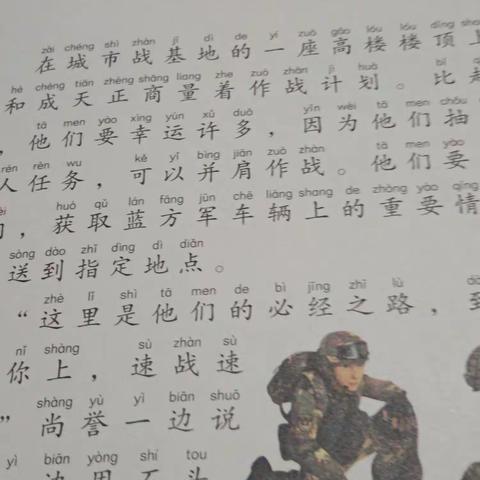 zài chéng shì zhàn jī dì de yí zuò gāo lóu lóu dǐng
在城市战基地的一座高楼楼顶上
hè chéng tiān zhèng shāng liang zhe zuò zhàn jì huà bǐ
和成天正商量着作战计划。比
tā men yào xìng yùn xǔ duō yīn wèi tā men chōu
，他们要幸运许多，因为他们抽
rén rèn wu kě yǐ bìng jiān zuò zhàn tā men yào
人任务，可以并肩作战。他们要
huò qǔ lán fāng jūn chē liàng shang de zhòng yào qíng
，获取蓝方军车辆上的重要情
sòng dào zhǐ dìng dì diǎn
送到指定地点。
zhè lǐ shì tā men de bì jīng zhī lù
“这里是他们的必经之路，
nǐ shàng sù zhàn sù
你上，速战速
shàng yù yì biān shuō
”尚誉一边说
yì biān yòng shí tou
边用石头